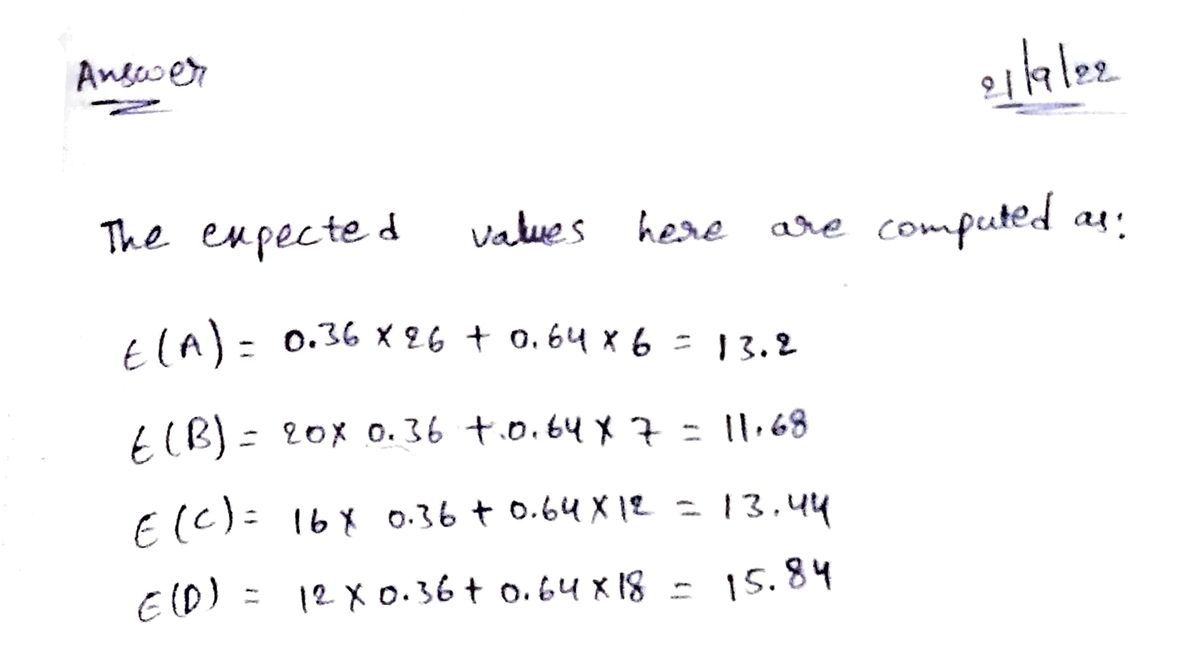 Answer
21/9/22
The expected values here are computed as:
E(A) = 0.36 x 26 + 0.64 x 6 = 13.2
E(B) = 20x 0.36 + 0.64 x 7 = 11.68
E(C) = 16x 0.36 + 0.64 x 12 = 13.44
E(D) = 12 x 0.36 + 0.64 x 18 = 15.84